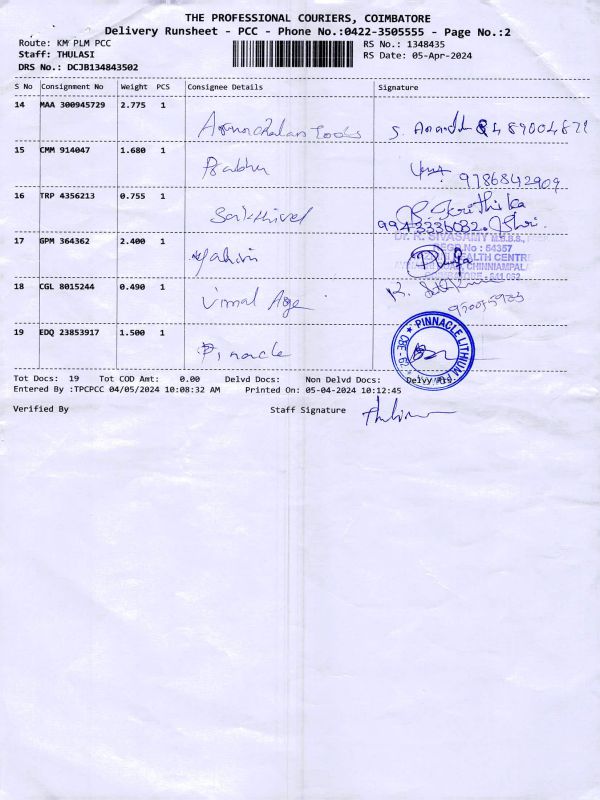 THE PROFESSIONAL COURIERS, COIMBATORE
Delivery Runsheet - PCC - Phone No.:0422-3505555 - Page No.:2
Route: KM PLM PCC
RS No.: 1348435
Staff: THULASI
RS Date: 05-Apr-2024
DRS No.: DCJB134843502
S No Consignment No Weight PCS Consignee Details Signature
14 MAA 300945729 2.775 1 Arunachalam Tools
15 CMM 914047 1.680 1 Prabhu 9786842909
16 TRP 4356213 0.755 1 Sakthivel Krithika
9943336082
17 GPM 364362 2.400 1
18 CGL 8015244 0.490 1 Vimal Age
19 EDQ 23853917 1.500 1 Pinnacle PINNACLE LITHIUM
Tot Docs: 19 Tot COD Amt: 0.00 Delvd Docs: Non Delvd Docs: Delvy Hrs:
Entered By :TPCPCC 04/05/2024 10:08:32 AM Printed On: 05-04-2024 10:12:45
Verified By Staff Signature